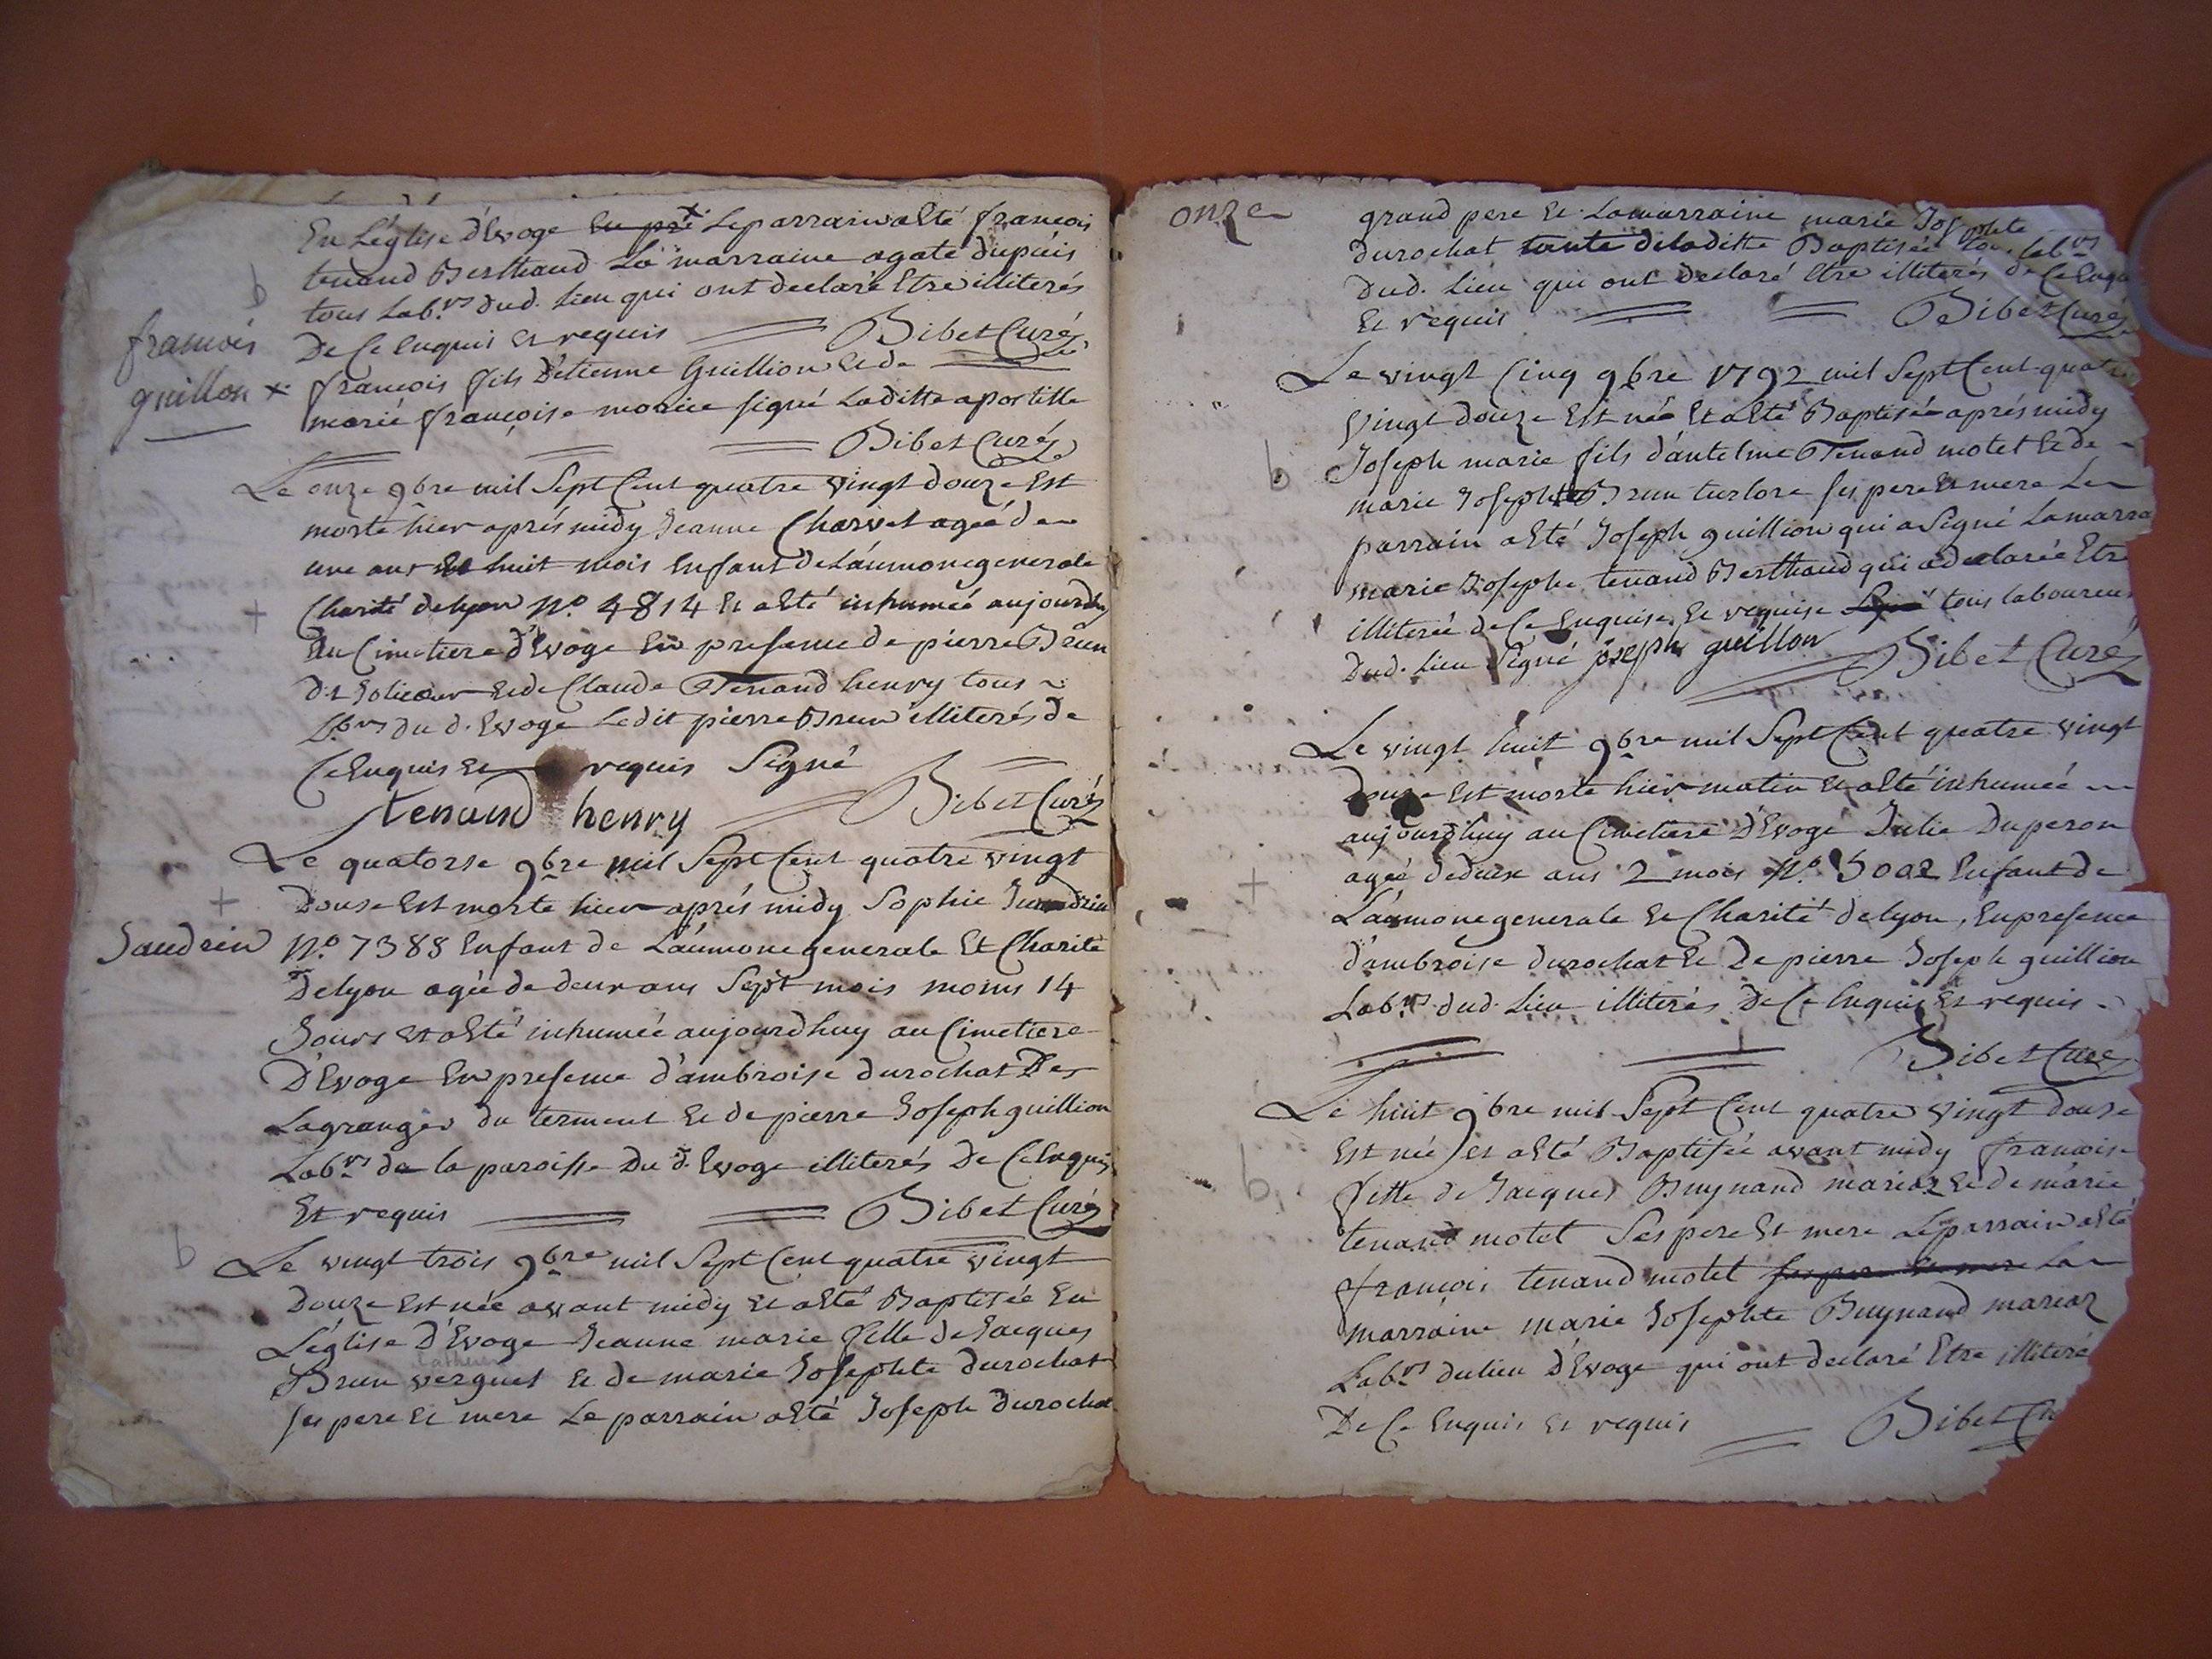 En L'église d'Evoge en pre Le parrain a Eté françois
tenand Berthaud La marraine agate dupuis
tous Lab.rs dud. Lieu qui ont declaré Etre illiterés
De Ce Enquis et requis Bibet Curé
françois
guillon x
françois fils D'etienne Guillion et de
marie françoise signé Laditte apostille
Bibet Curé
Le onze 9bre mil Sept Cent quatre vingt douze Est
morte hier aprés midy Jeanne Charvet agée de
une ans et huit mois Enfant de L'aumone generale
Charité de lyon N.o 4814 Et a Eté inhumée aujourdhuy
au Cimetiere d'Evoge En presence de pierre Brun
dit Jolicoeur et de Claude Tenand henry tous
Lbrs du d. Evoge Le dit pierre Brun illiterés de
Ce Enquis et requis Signé
tenand henry Bibet Curé
Le quatorse 9bre mil Sept Cent quatre vingt
Douse Est morte hier aprés midy Sophie
Saudrin
N.o 7388 Enfant de L'aumone generale Et Charité
De lyon agée de deux ans Sept mois moins 14
Jours et a Eté inhumée aujourdhuy au Cimetiere
D'Evoge En presence d'ambroise durochat Des
Lagranges du terment et de pierre Joseph guillion
Lab.rs de la paroisse Du d. Evoge illiterés De Ce Enquis
Et requis Bibet Curé
b
Le vingt trois 9bre mil Sept Cent quatre vingt
Douze Est née avant midy et a Eté Baptisée En
L'église D'Evoge Jeanne marie fille de Jacques
Brun verguet et de marie Josephte durochat
ses pere et mere Le parrain a Eté Joseph durochat
onze
grand pere et La marraine marie Josephte
durochat tante de laditte Baptisée tous Lab.rs
Dud. Lieu qui ont declaré Etre illiterés de Ce Enqu
Et requis Bibet Curé
Le vingt Cinq 9bre 1792 mil Sept Cent quatre
Vingt douze Est née Et a Eté Baptisée aprés midy
b
Joseph marie fils d'antelme Tenand motet et de
marie Josephte Brun ses pere et mere Le
parrain a Eté Joseph guillion qui a Signé La marra
marie Josephe tenand Berthaud qui a declarée Etre
illiterée de Ce Enquise et requise Signé tous laboureurs
Dud. Lieu Signé joseph guillon Bibet Curé
Le vingt huit 9bre mil Sept Cent quatre vingt
Douze Est morte hier matin et a Eté inhumée
aujourdhuy au Cimetiere D'Evoge Julie Duperon
agée de deux ans 2 mois N.o 5002 Enfant de
L'aumone generale et Charité de lyon, En presence
d'ambroise durochat et De pierre Joseph guillion
Lab.rs dud. Lieu illiterés De Ce Enquis et requis
Bibet Curé
Le huit 9bre mil Sept Cent quatre vingt douse
Est née et a Eté Baptisée avant midy francoise
fille de Jacques Buynand mariaz et de marie
tenand motet Ses pere et mere Le parrain a Eté
françois tenand motet ses pere et mere La
marraine marie Josephte Buynand mariaz
Lab.rs du lieu D'Evoge qui ont declaré Etre illiteré
De Ce Enquis et requis Bibet Cu